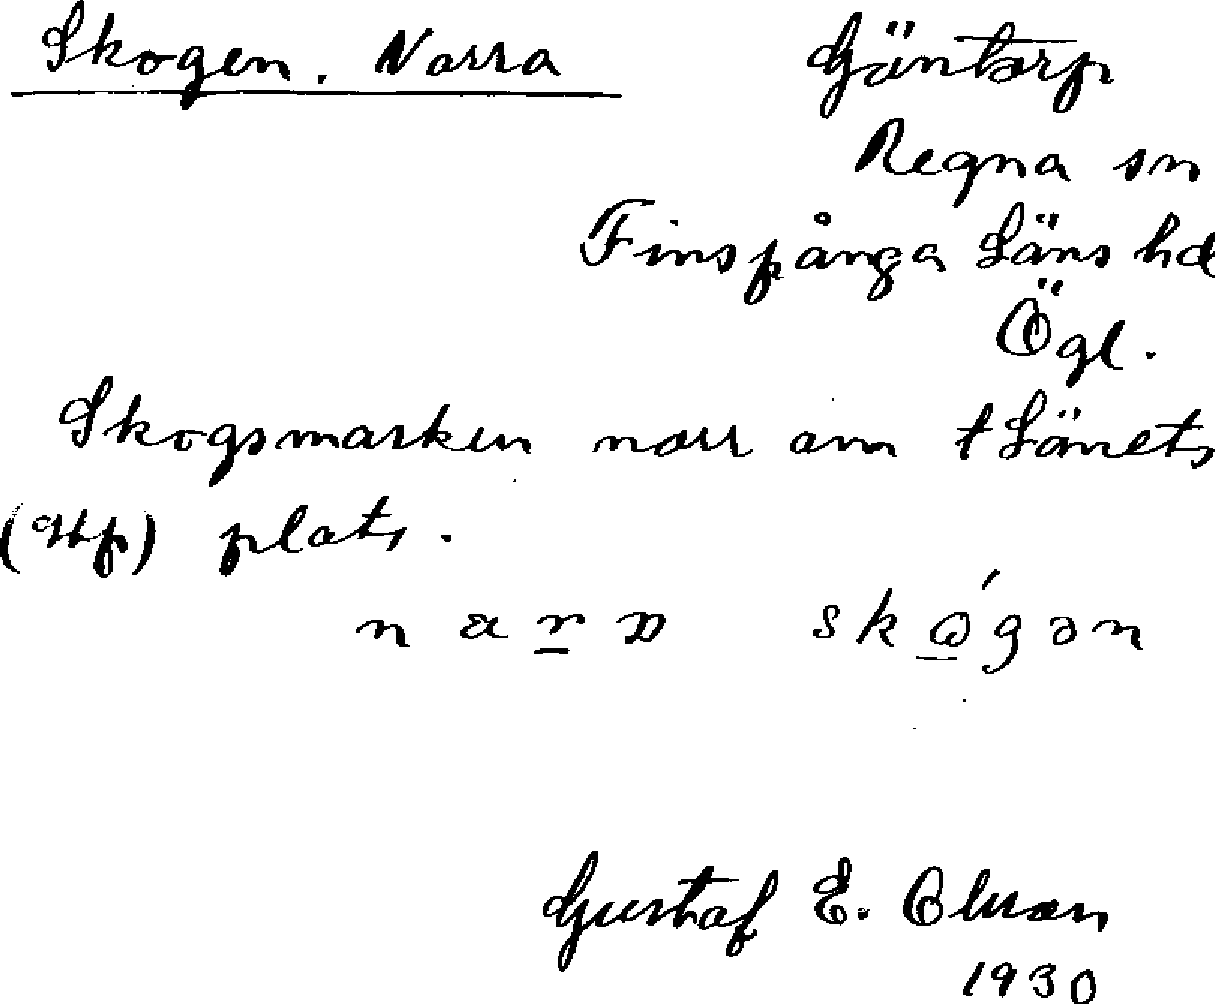 Skogen. Norra Gäntorp
Regna sn
Finspånga Läns hd
Ögl.
Skogsmarken norr om † Länets
plats.
skógən
Gustaf E. Olsson
1930